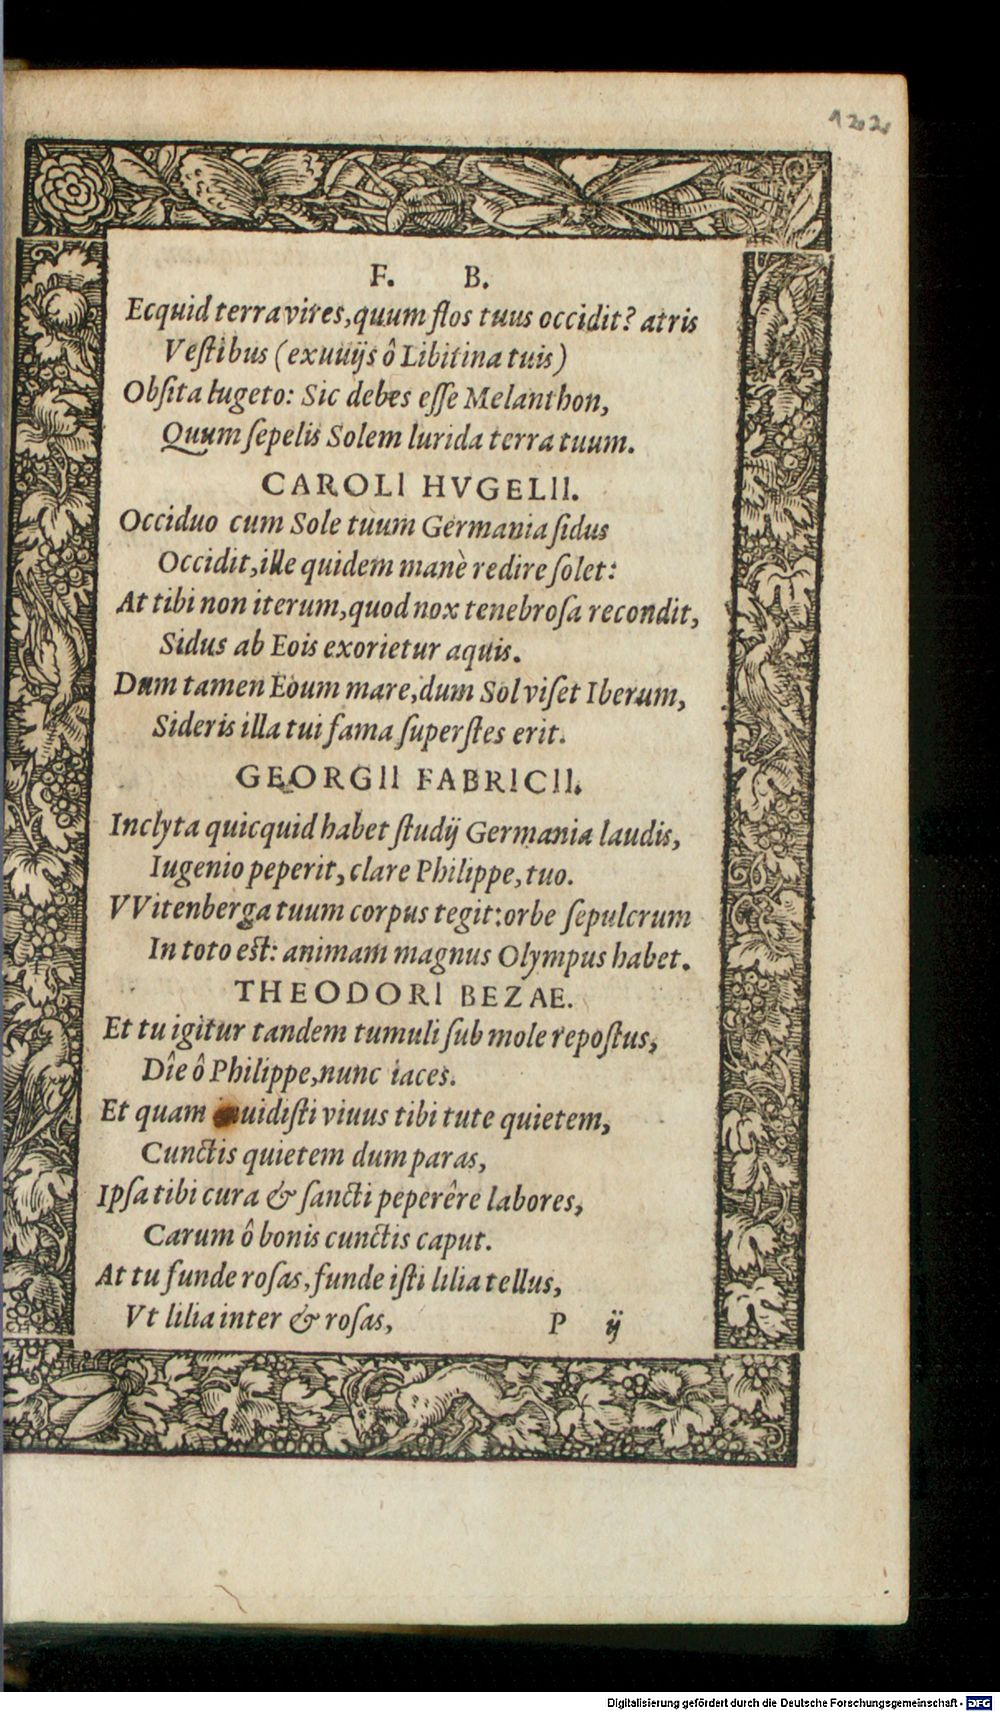 122
F. B.
Ecquid terra vires, quum flos tuus occidit? atris
Veſtibus (exuuijs ô Libitina tuis)
Obſita lugeto: Sic debes eſſe Melanthon,
Quum ſepelis Solem lurida terra tuum.
CAROLI HVGELII.
Occiduo cum Sole tuum Germania ſidus
Occidit, ille quidem manè redire ſolet:
At tibi non iterum, quod nox tenebroſa recondit,
Sidus ab Eois exorietur aquis.
Dum tamen Eoum mare, dum Sol viſet Iberum,
Sideris illa tui fama ſuperſtes erit.
GEORGII FABRICII.
Inclyta quicquid habet ſtudij Germania laudis,
Iugenio peperit, clare Philippe, tuo.
VVitenberga tuum corpus tegit: orbe ſepulcrum
In toto eſt: animam magnus Olympus habet.
THEODORI BEZAE.
Et tu igitur tandem tumuli ſub mole repoſtus,
Dîe ô Philippe, nunc iaces.
Et quam uidiſti viuus tibi tute quietem,
Cunctis quietem dum paras,
Ipſa tibi cura & ſancti peperêre labores,
Carum ô bonis cunctis caput.
At tu funde roſas, funde iſti lilia tellus,
Vt lilia inter & roſas, P ij
Digitalisierung gefördert durch die Deutsche Forschungsgemeinschaft - DFG